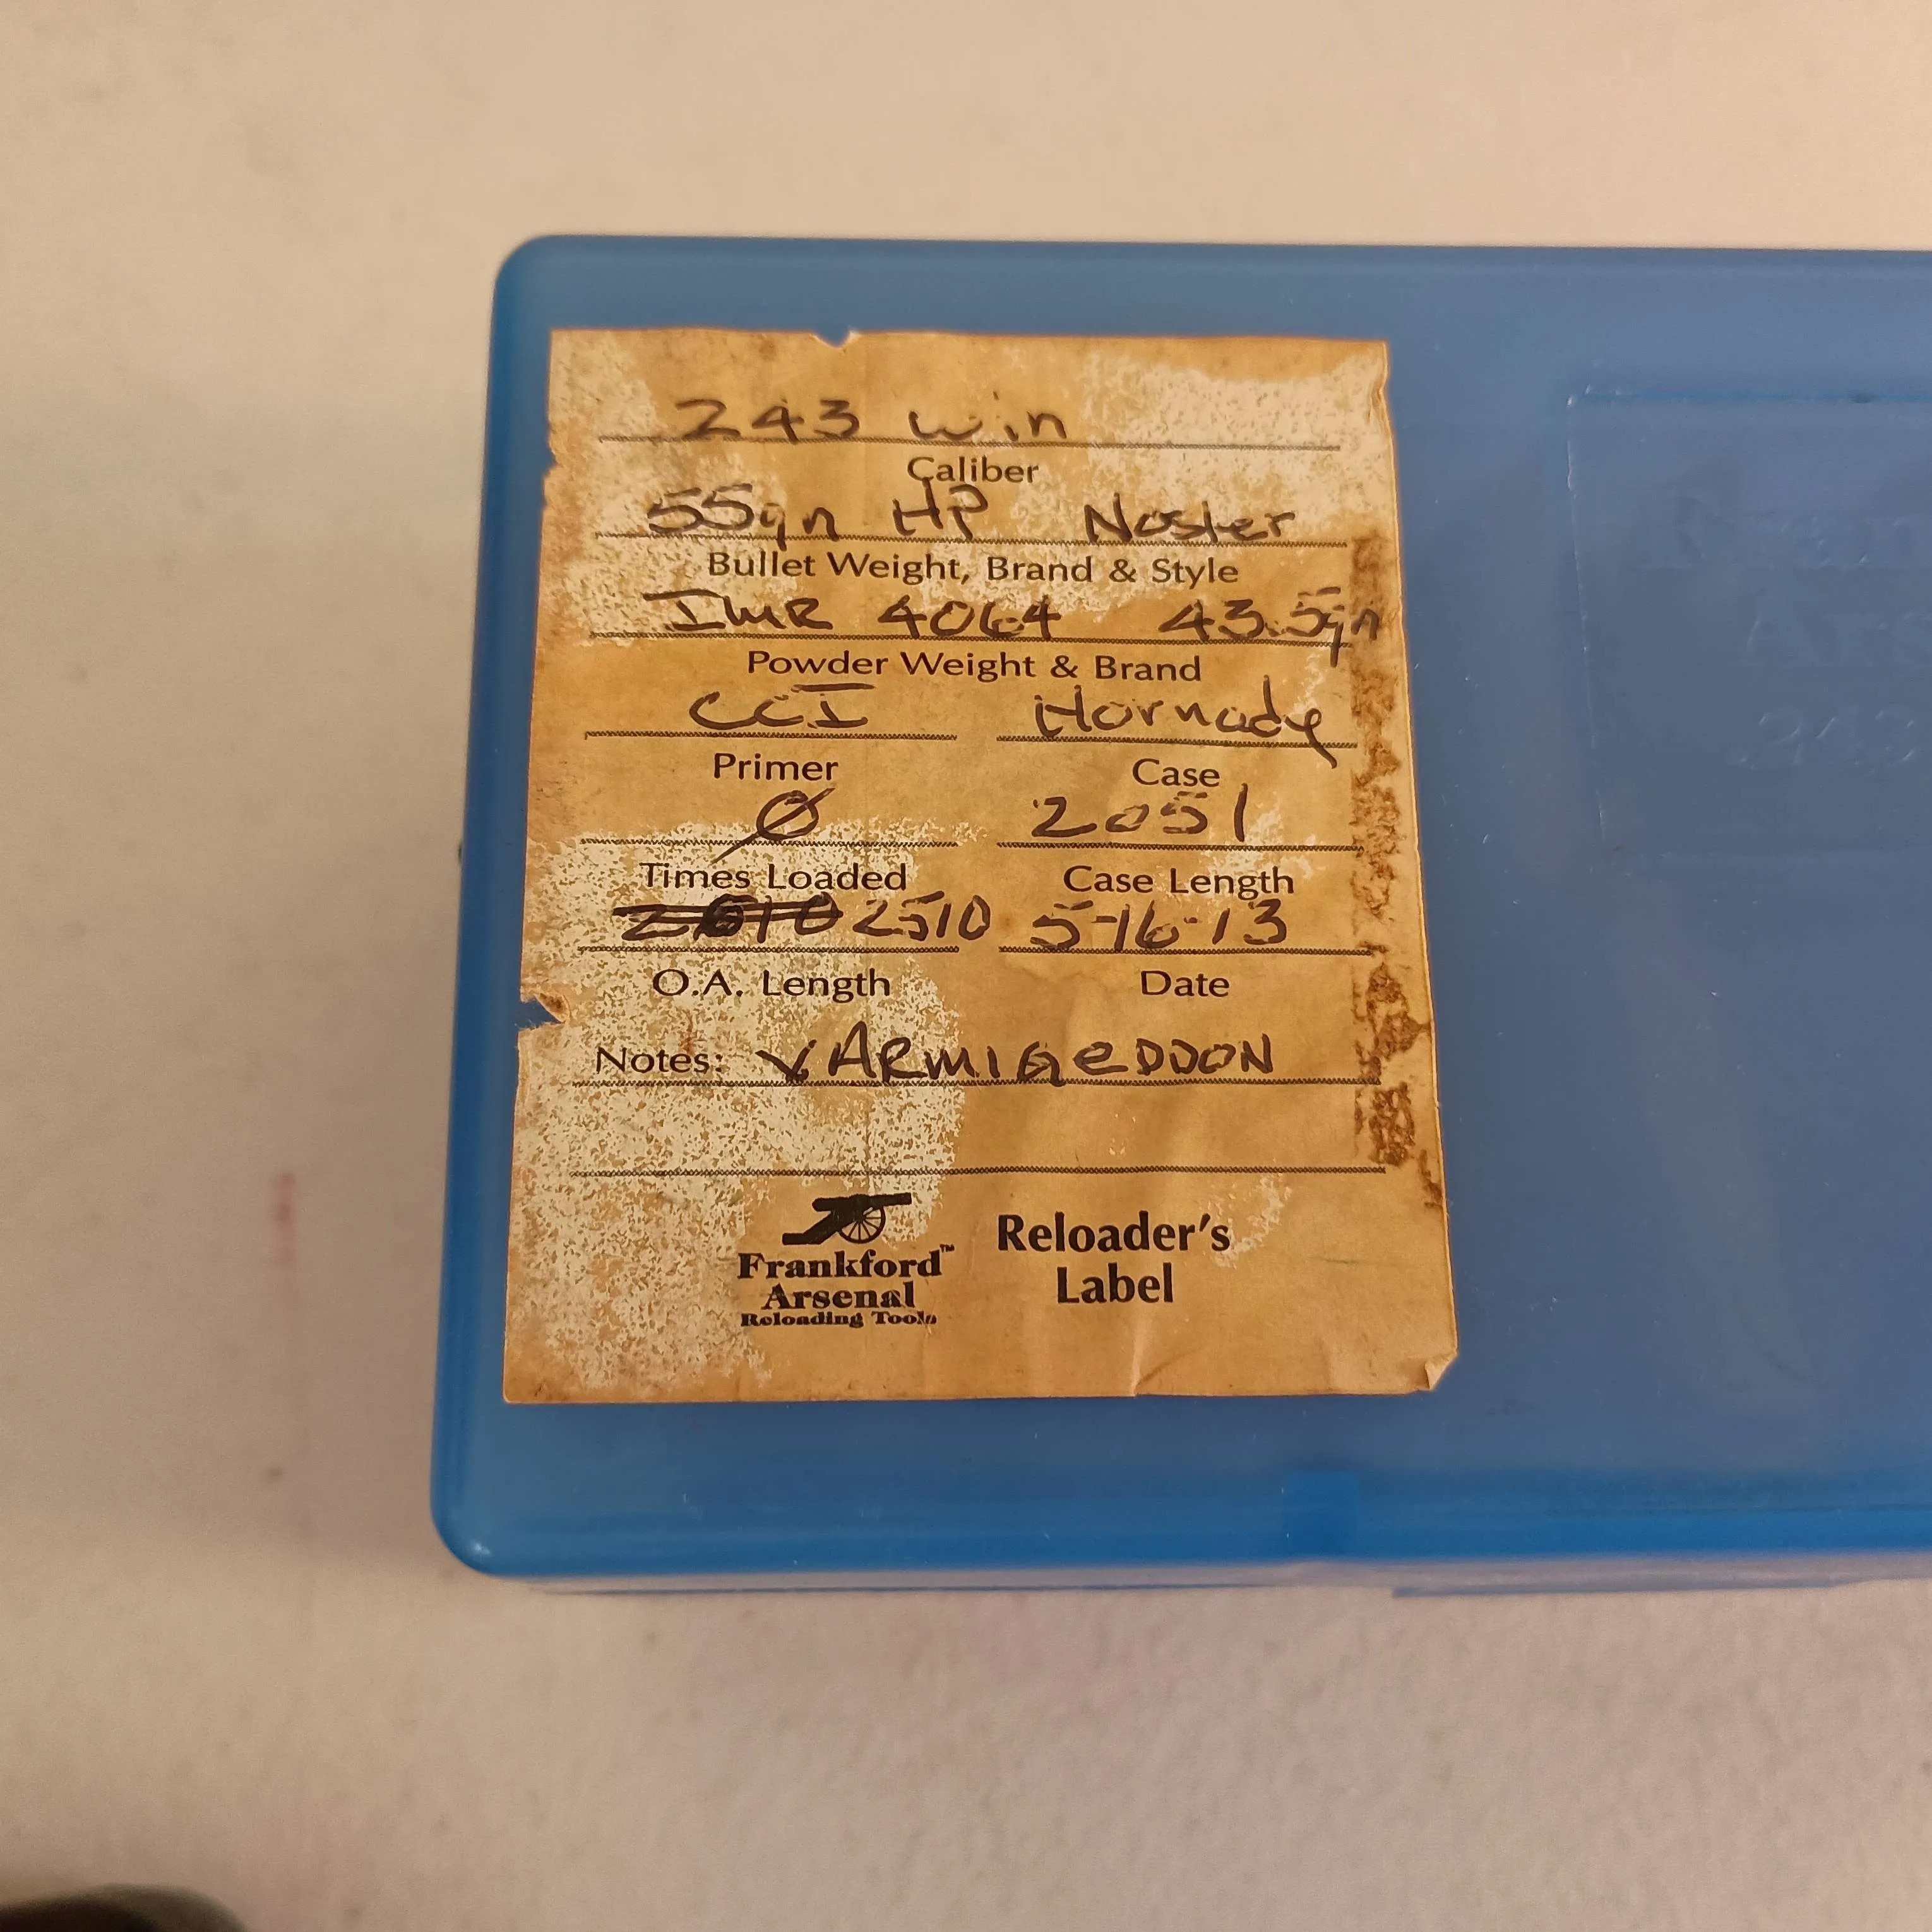 243 win
Caliber
55gn HP Nosler
Bullet Weight, Brand & Style
IMR 4064 43.5gn
Powder Weight & Brand
CCI Hornady
Primer Case
Ø 2051
Times Loaded Case Length
2510 5-16-13
O.A. Length Date
Notes: VARMIGEDDON
Frankford™ Reloader's
Arsenal Label
Reloading Tools